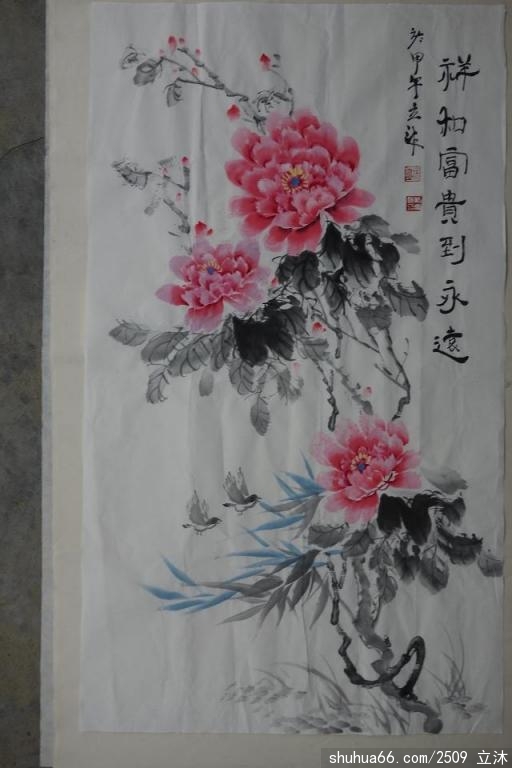 祥和富貴到永遠
於甲午立沐
shuhua66.com/2509 立沐